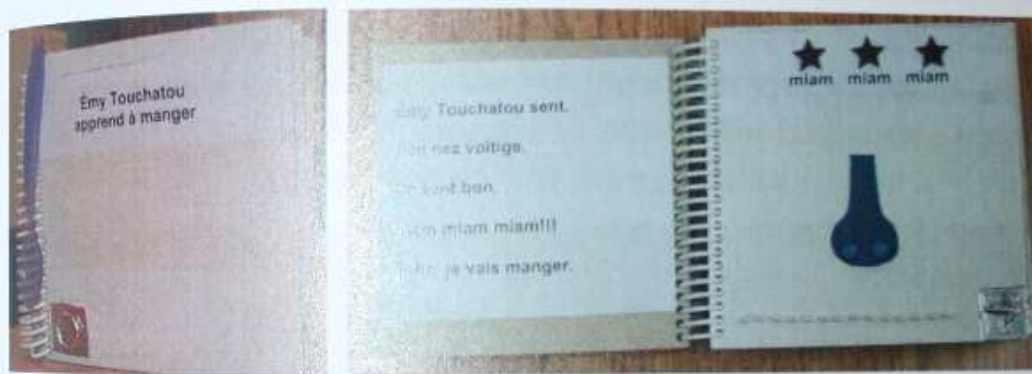 Émy Touchatou
apprend à manger
Émy Touchatou sent.
Son nez voltige.
Ça sent bon.
miam miam!!!
je vais manger.
miam miam miam